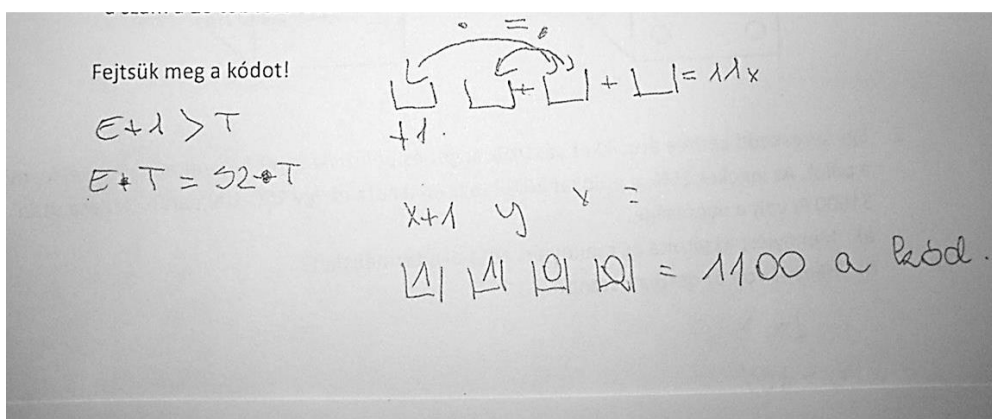 Fejtsük meg a kódot!
E+1 > T
E+T = S2·T
· = .
+ + = 11x
+1.
x+1 y x =
1 1 0 0 = 1100 a kód.